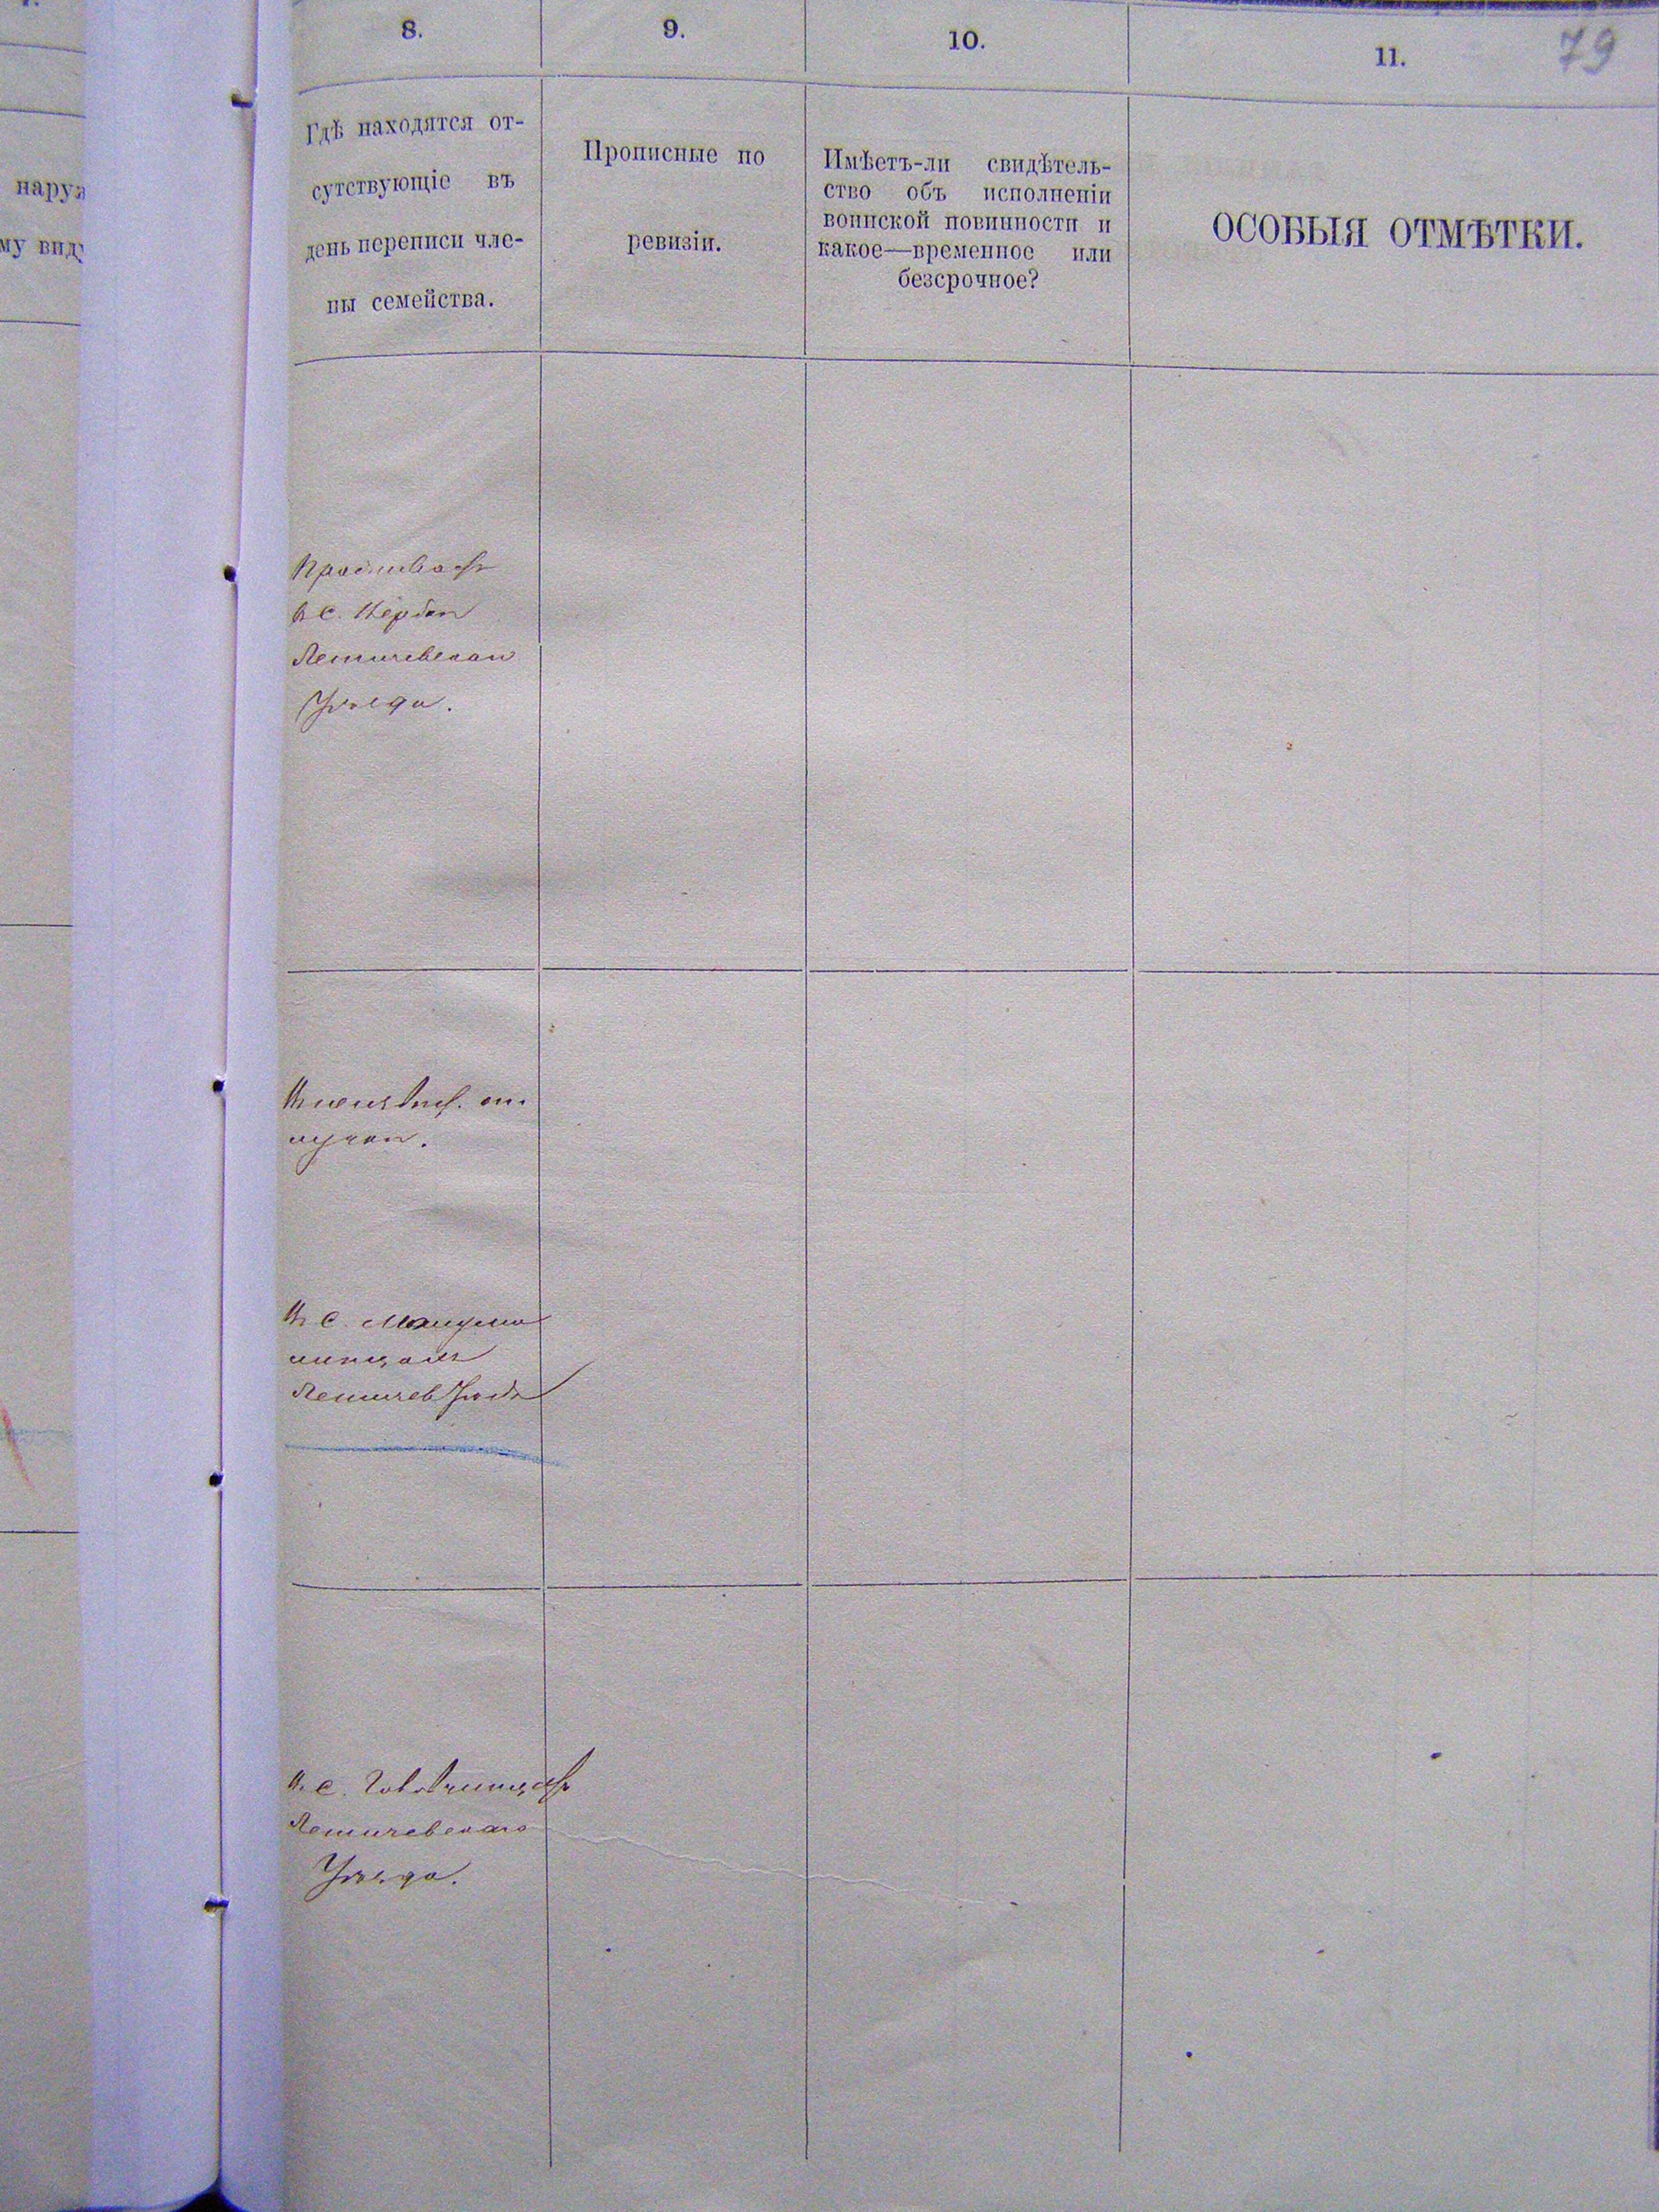 8.
9.
10.
11.
79
нару
му вид
Гдѣ находятся от-
сутствующіе въ
день переписи чле-
ны семейства.
Прописные по
ревизіи.
Имѣетъ-ли свидѣтель-
ство объ исполненіи
воинской повинности и
какое—временное или
безсрочное?
ОСОБЫЯ ОТМѢТКИ.
Проживаетъ
в с.
Летичевскаго
Уѣзда.
В
В с.
Летичев Уѣзда
В с.
Летичевскаго
Уѣзда.